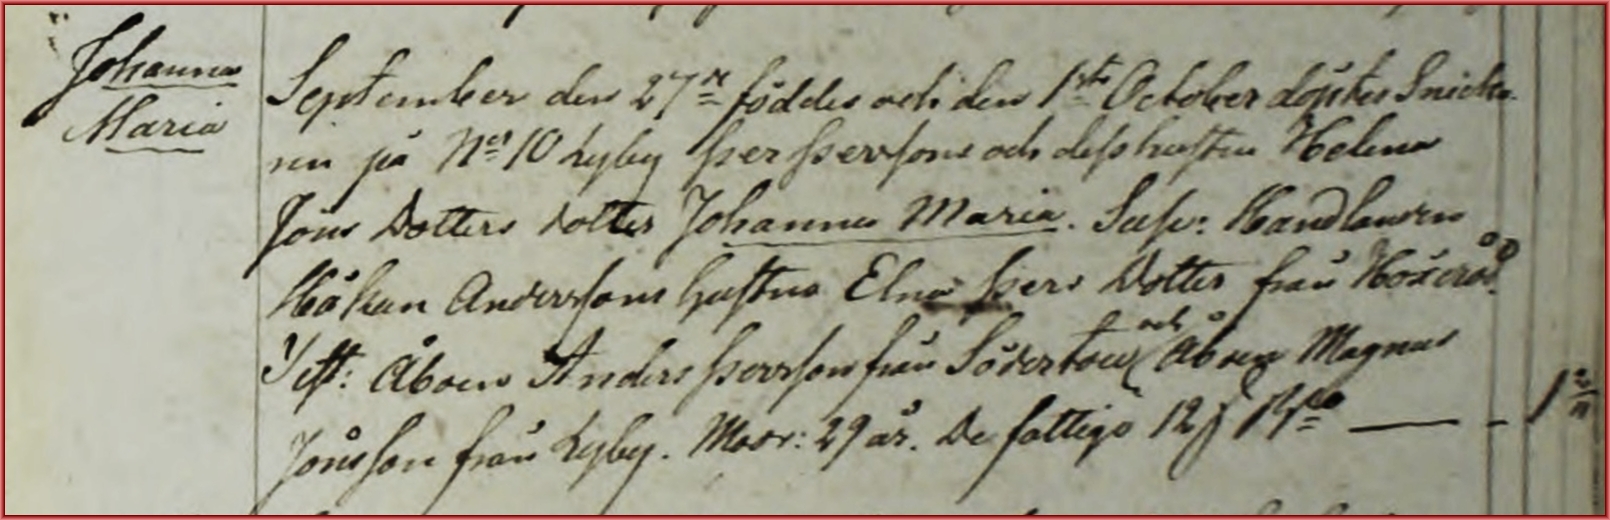 Johanna
Maria
September den 27de föddes och den 1ste October döptes Snicka-
ren på No 10 Lyby Per Perssons och dess hustru Helena
Jöns Dotters dotter Johanna Maria. Susc: Handlanden
Håkan Anderssons hustru Elna Pers Dotter från
Test: Åboen Anders Persson från och Åboen Magnus
Jönsson från Lyby. Modr: 29 år. De fattiga 12 s